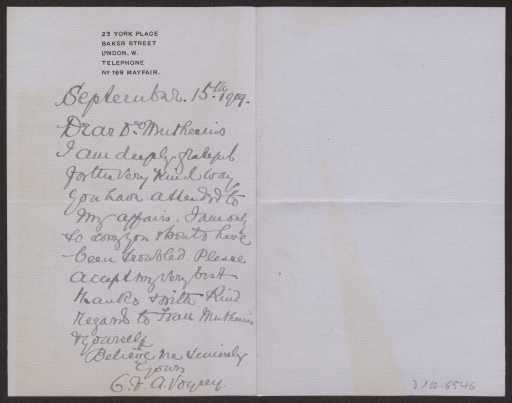 23 YORK PLACE
BAKER STREET
LONDON, W.
TELEPHONE
No 169 MAYFAIR.
September. 15.th 1909.
Dear Dr. Muthesius
I am deeply grateful
for the very kind way
you have attended to
my affairs. I am only
so sorry you should have
been troubled. Please
accept my very best
thanks & with kind
regards to Frau Muthesius
& yourself
Believe me sincerely
Yours
C. F. A. Voysey.